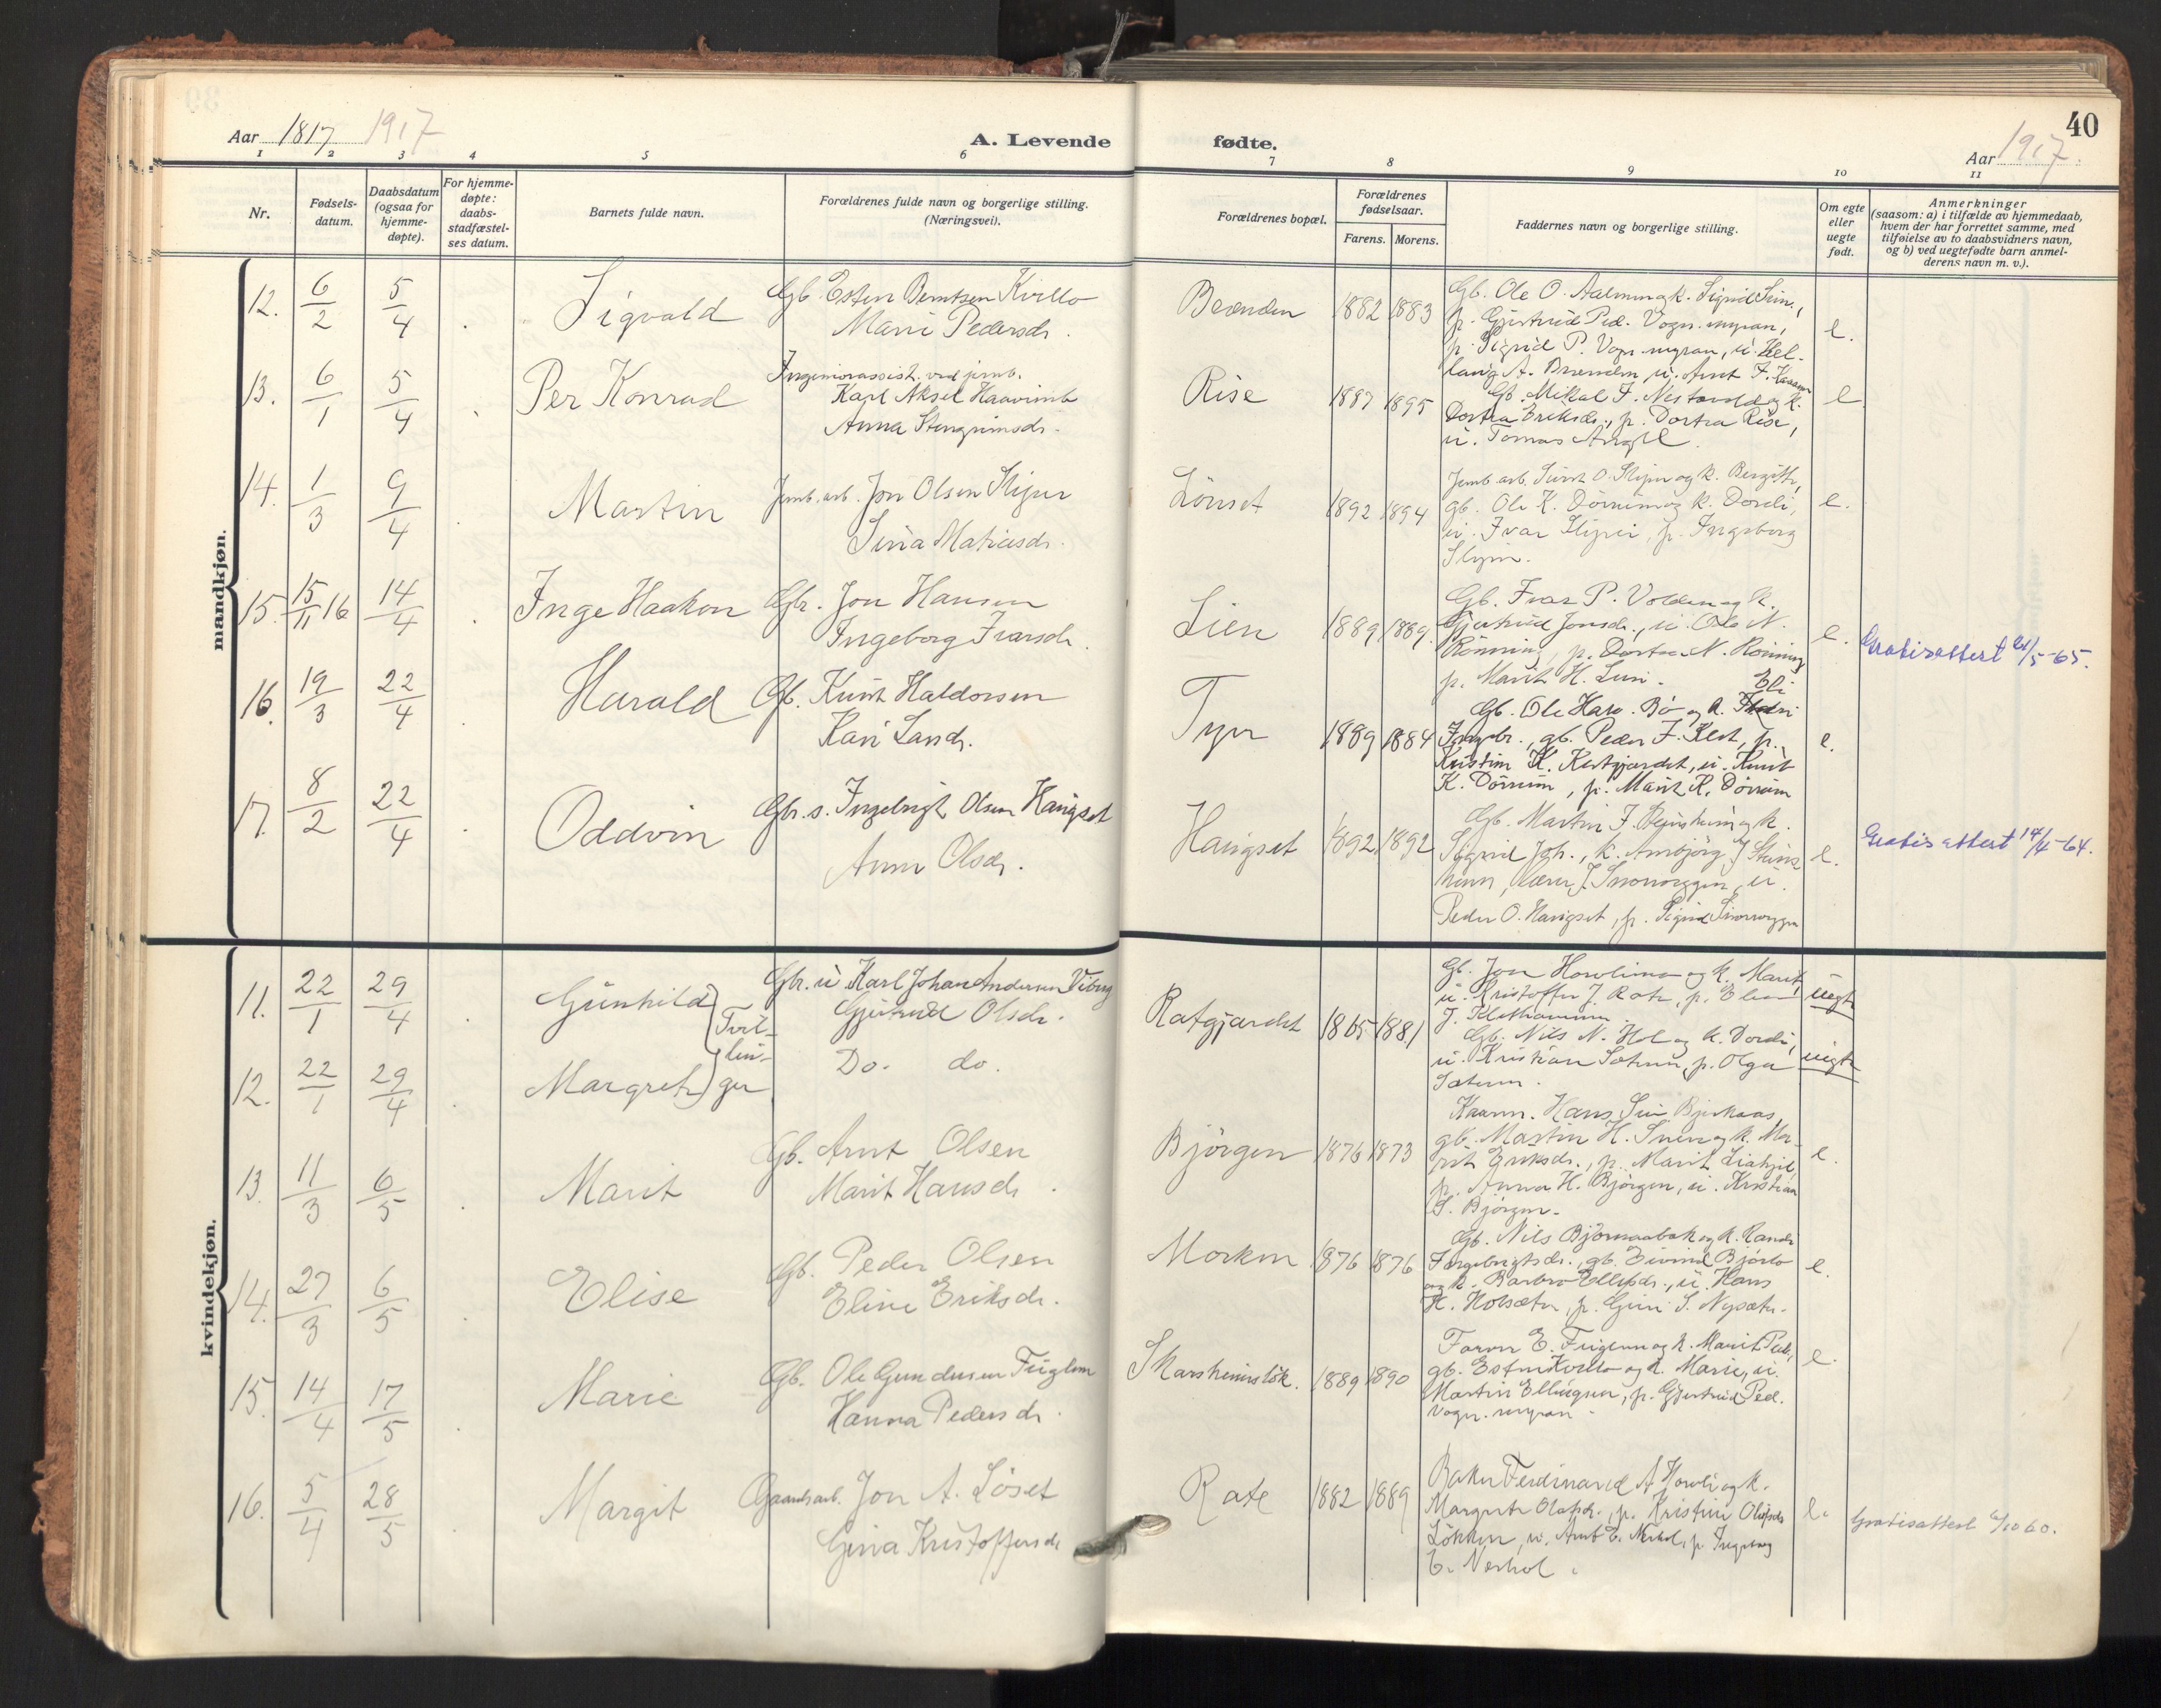 40
Aar 1817 1917
A. Levende fødte.
Aar 1917.
1 2 3 4 5 6 7 8 9 10 11
Nr.
Fødsels-
datum.
Daabsdatum
(ogsaa for
hjemme-
døpte).
For hjemme-
døpte:
daabs-
stadfæstel-
ses datum.
Barnets fulde navn.
Forældrenes fulde navn og borgerlige stilling.
(Næringsvei).
Forældrenes bopæl.
Forældrenes
fødselsaar.
Farens. Morens.
Faddernes navn og borgerlige stilling.
Om egte
eller
uegte
født.
Anmerkninger
(saasom: a) i tilfælde av hjemmedaab,
hvem der har forrettet samme, med
tilføielse av to daabsvidners navn,
og b) ved uegtefødte barn anmel-
derens navn m. v.).
mandkjøn.
12. 6/2 5/4 Sigvald
Gb. Esten Berntsen Kvello
Marie Pedersdr.
Brænden 1882 1883
Gb. Ole O. Aalmo og k. Sigrid
p. Gjertrud Ped. Vogn.myran,
p. Sigrid P. Vogn.myran, u. Hel-
laug A. Brænden u. Arnt F.
e.
13. 6/1 5/4 Per Konrad
Ingeniørassist. ved jernb.
Karl Aksel Haavimb
Anna Stengrimsdr.
Rise 1887 1895
Gb. Mikal F. Nestavold og k.
Dortea Eriksdr., p. Dortea Rise,
u. Tomas Angell.
e.
14. 1/3 9/4 Martin
Jernb. arb. Jon Olsen Sliper
Sina Matiasdr.
Lönset 1892 1894
Jernb. arb. Sivert O. Slipern og k. Bergitte,
gb. Ole K. Dörrum og k. Dordi,
u. Ivar Sliper, p. Ingeborg
Sliper.
e.
15. 15/11 16 14/4 Inge Haakon
Gbr. Jon Hansen
Ingeborg Ivarsdr.
Lien 1889 1889
Gb. Ivar P. Volden og k.
Gjertrud Jonsdr., u. Ole N.
Rönning, p. Dortea N. Rönning
p. Marit H. Lien.
e.
Gratisattest 21/5-65.
16. 19/3 22/4 Harald
Gb. Knut Haldorsen
Kari Larsdr.
Tyer 1889 1884
Eli
Gb. Ole Har. Bö og k.
Ingebr., gb. Peder F. Klet, p.
Kristine K. Kletgjærdet, u. Knut
K. Dörrum, p. Marit K. Dörrum
e.
17. 8/2 22/4 Oddvin
Gbr.s. Ingebrigt Olsen Haugset
Anne Olsdr.
Haugset 1892 1892
Gb. Martin J. Stensheim og k.
Sigrid Joh., k. Ambjörg J. Stens-
heim, lærer J. Snoroeggen, u.
Peder O. Haugset, p. Sigrid Snoroeggen
e.
Gratisattest 14/4-64.
kvindekjøn.
11. 22/1 29/4 Gunhild
Tvil-
lin-
ger
Gbr. u. Karl Johan Andersen Viberg
Gjertrud Olsdr.
Ratgjærdet 1865 1881
Gb. Jon Hovlimo og k. Marit,
u. Kristoffer J. Rate, p. Elen
J. Klethammer.
uegte
12. 22/1 29/4 Margrete
Do. do.
Gb. Nils N. Hol og k. Dordi,
u. Kristian Sæterum, p. Olga
Sæterum.
uegte
13. 11/3 6/5 Marit
Gb. Arnt Olsen
Marit Hansdr.
Björgen 1876 1873
Kaarm. Hans Bjerkaas,
gb. Martin H. Snen og k. Ma-
rit Eriksdr., p. Marit Liahjel,
p. Anna H. Björgen, u. Kristian
S. Björgen.
e.
14. 27/3 6/5 Elise
Gb. Peder Olsen
Eline Eriksdr.
Morken 1876 1876
Gb. Nils Björnaabak og k. Randi
Ingebrigtsdr., gb. Eivind Bjørlo
og k. Barbro Ellefsdr., u. Hans
H. Holsæter, p. Guri S. Nysæter.
e.
15. 14/4 17/5 Marie
Gb. Ole Gundersen Fuglem
Hanna Pedersdr.
Skarsheimslök. 1889 1890
Farver E. Fuglem og k. Marit Ped.,
gb. Esten Kvello og k. Marie, u.
Martin Ellingsen, p. Gjertrud Ped.
Vogn.myran.
e.
16. 5/4 28/5 Margit
Gaardsarb. Jon A. Löset
Gina Kristoffersdr.
Rate 1882 1889
Baker Ferdinand A. Hovli og k.
Margrete Olafsdr., p. Kristine Olufsdr
Lökken, u. Arnt E. Nerhol, p. Ingeborg
E. Nerhol.
e.
Gratisattest 6/10 60.